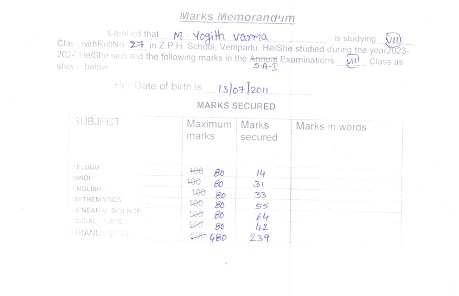 Marks Memorandum
Certified that M. Yogith varma is studying VIII
Class with RollNo. 27 in Z.P.H. School, Vempadu. He/She studied during the year2023-
2024 He/She secured the following marks in the Annual Examinations VIII Class as
SA-I
shown below
Her Date of birth is 13/07/2011
MARKS SECURED
SUBJECT Maximum marks Marks secured Marks in words
TELUGU 100 80 14
HINDI 100 80 31
ENGLISH 100 80 33
MATHEMATICS 100 80 55
GENEARAL SCIENCE 100 80 64
SOCIAL STUDIES 100 80 42
GRAND TOTAL 480 239